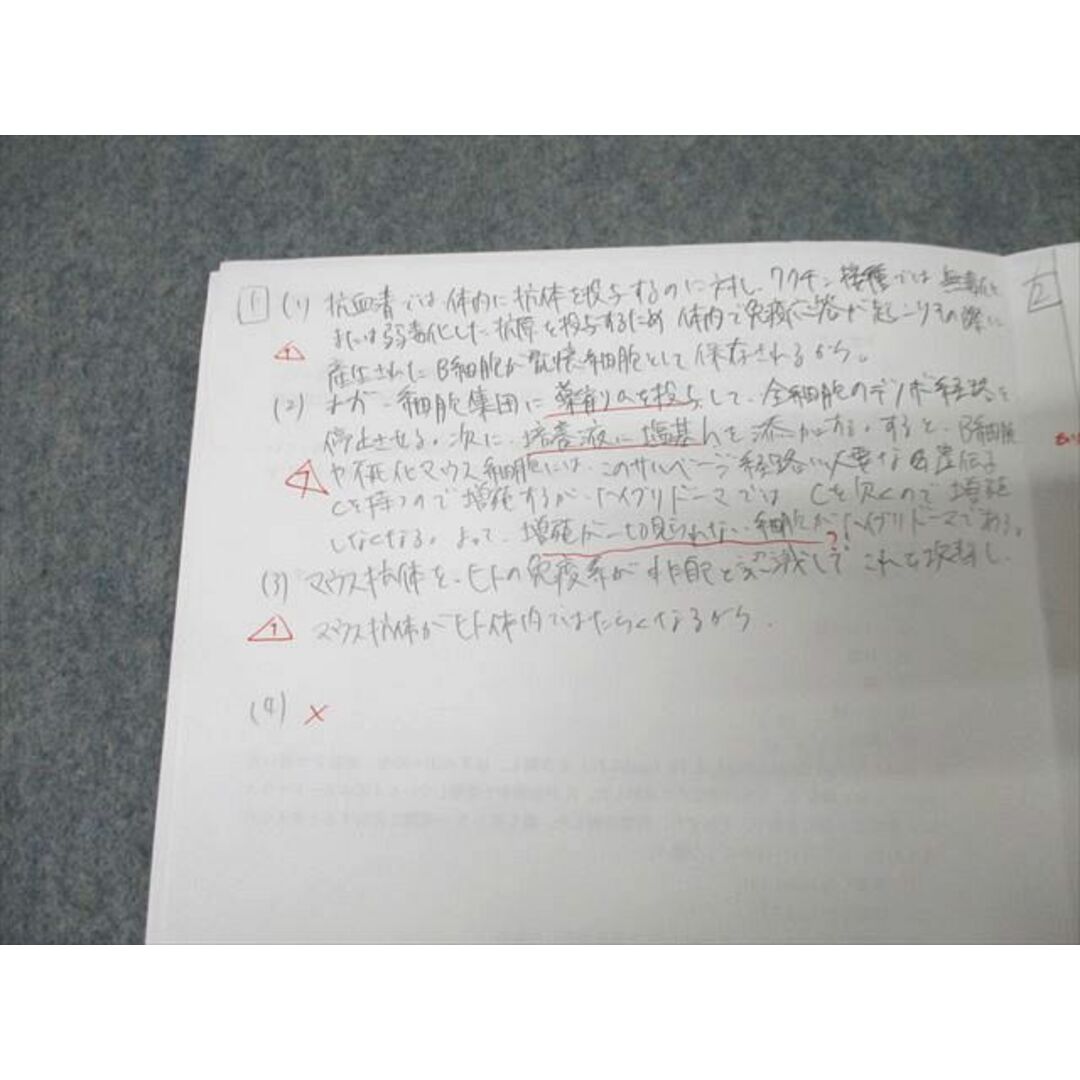 1 (1) 抗血清では体内に抗体を投与するのに対し、ワクチン接種では無毒化
または弱毒化した抗原を投与するため 体内で免疫応答が起こりその際に
産生されたB細胞が記憶細胞として保存されるから。
(2) まず、細胞集団に薬剤aを投与して、全細胞のデノボ経路を
停止させる。次に、培養液に塩基hを添加する。すると、B細胞
や不死化マウス細胞には、このサルベージ経路に必要な遺伝子
Cを持つので増殖するが、ハイブリドーマでは Cを欠くので増殖
しなくなる。よって、増殖が見られない細胞がハイブリドーマである。
?
(3) マウス抗体を、ヒトの免疫系が非自己と認識して これを攻撃し、
マウス抗体がヒト体内ではたらくなるから。
(4) ×
2